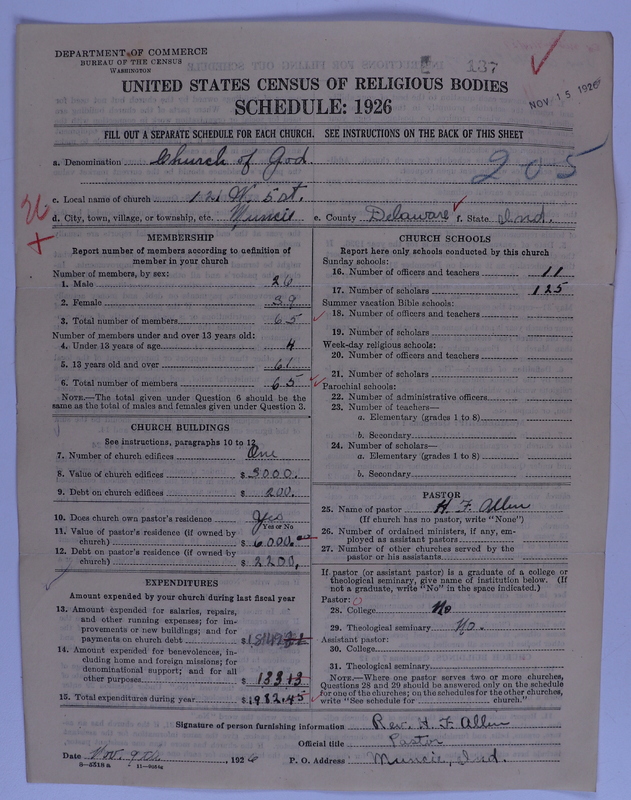 DEPARTMENT OF COMMERCE
BUREAU OF THE CENSUS
WASHINGTON
137
UNITED STATES CENSUS OF RELIGIOUS BODIES
SCHEDULE: 1926
NOV 15 1926
FILL OUT A SEPARATE SCHEDULE FOR EACH CHURCH. SEE INSTRUCTIONS ON THE BACK OF THIS SHEET
a. Denomination Church of God.
205
c. Local name of church 121 W. 5 st.
d. City, town, village, or township, etc. Muncie e. County Delaware f. State Ind.
MEMBERSHIP
Report number of members according to definition of
member in your church
Number of members, by sex:
1. Male 26
2. Female 39
3. Total number of members 65
Number of members under and over 13 years old:
4. Under 13 years of age 4
5. 13 years old and over 61
6. Total number of members 65
NOTE.—The total given under Question 6 should be
same as the total of males and females given under Question 3.
CHURCH BUILDINGS
See instructions, paragraphs 10 to 12
7. Number of church edifices One
8. Value of church edifices $3000.
9. Debt on church edifices $200.
10. Does church own pastor's residence Yes
Yes or No
11. Value of pastor's residence (if owned by
church) $6000.00
12. Debt on pastor's residence (if owned by
church) $2200.
EXPENDITURES
Amount expended by your church during last fiscal year
13. Amount expended for salaries, repairs,
and other running expenses; for im-
provements or new buildings; and for
payments on church debt $
14. Amount expended for benevolences, in-
cluding home and foreign missions; for
denominational support; and for all
other purposes $133 13
15. Total expenditures during year $1982.45
CHURCH SCHOOLS
Report here only schools conducted by this church
Sunday schools:
16. Number of officers and teachers 11
17. Number of scholars 125
Summer vacation Bible schools:
18. Number of officers and teachers
19. Number of scholars
Week-day religious schools:
20. Number of officers and teachers
21. Number of scholars
Parochial schools:
22. Number of administrative officers
23. Number of teachers—
a. Elementary (grades 1 to 8)
b. Secondary
24. Number of scholars—
a. Elementary (grades 1 to 8)
b. Secondary
PASTOR
25. Name of pastor H. F. Allen
(If church has no pastor, write "None")
26. Number of ordained ministers, if any, em-
ployed as assistant pastors
27. Number of other churches served by the
pastor or his assistants
If pastor (or assistant pastor) is a graduate of a college or
theological seminary, give name of institution below. (If
not a graduate, write "No" in the space indicated.)
Pastor:
28. College No
29. Theological seminary No.
Assistant pastor:
30. College
31. Theological seminary
NOTE.—Where one pastor serves two or more churches,
Questions 28 and 29 should be answered only on the schedule
for one of the churches; on the schedules for the other churches,
write "See schedule for church."
Signature of person furnishing information Rev. H. F. Allen
Official title Pastor
Date Nov. 9th, 1926 P. O. Address Muncie, Ind.